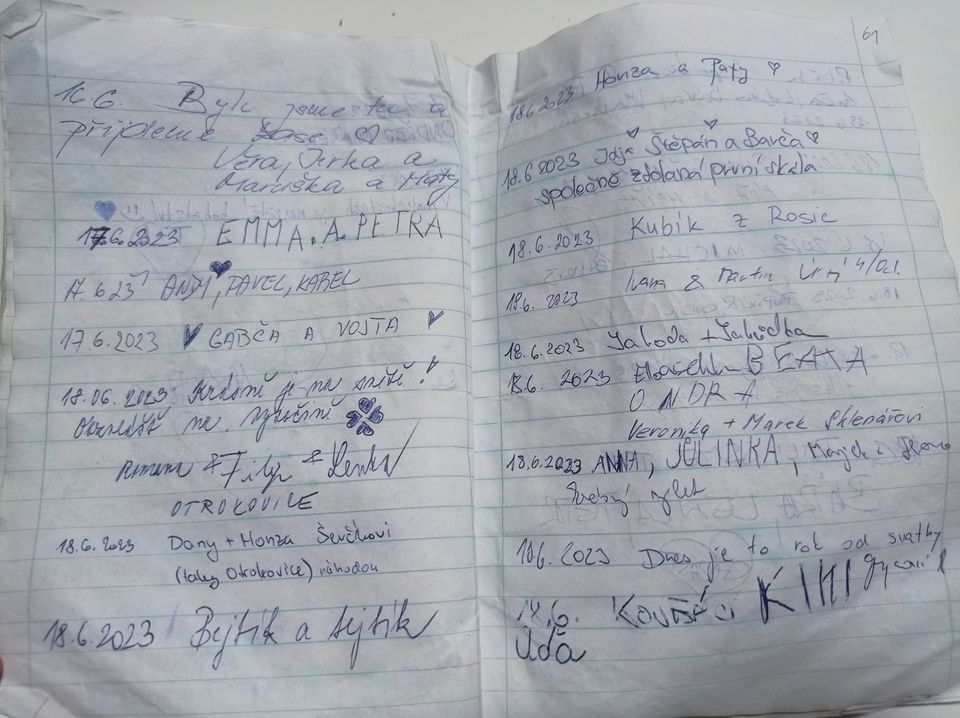 16.6. Byli jsme tu a
přijdeme zase ♡
Věra, Jirka a
Maruška a Maty
17.6.2023 EMMA. A. PETRA
17.6 23 ANDY, PAVEL, KAREL
17.6.2023 GABČA A VOJTA
18.06.2023 Krásně je na světě!
na Vysočině
+ Filip + Lenka
OTROKOVICE
18.6.2023 Dany + Honza Ševčíkovi
(taky Otrokovice) náhodou
18.6.2023 Bejtík a tejtík
61
18.6.2023 Honza a Paty ♡
18.6.2023 Štěpán a Barča ♡
společně zdolaná první skála
18.6.2023 Kubík z Rosic
18.6. 2023 Ivana & Martin
18.6.2023 Jahoda + Jahůdka
18.6. 2023 BEATA
ONDRA
Veronika + Marek Sklenářovi
18.6.2023 ANNA, JULINKA,
výlet
18.6.2023 Dnes je to rok od svatby
18.6. KIKI
Uďa